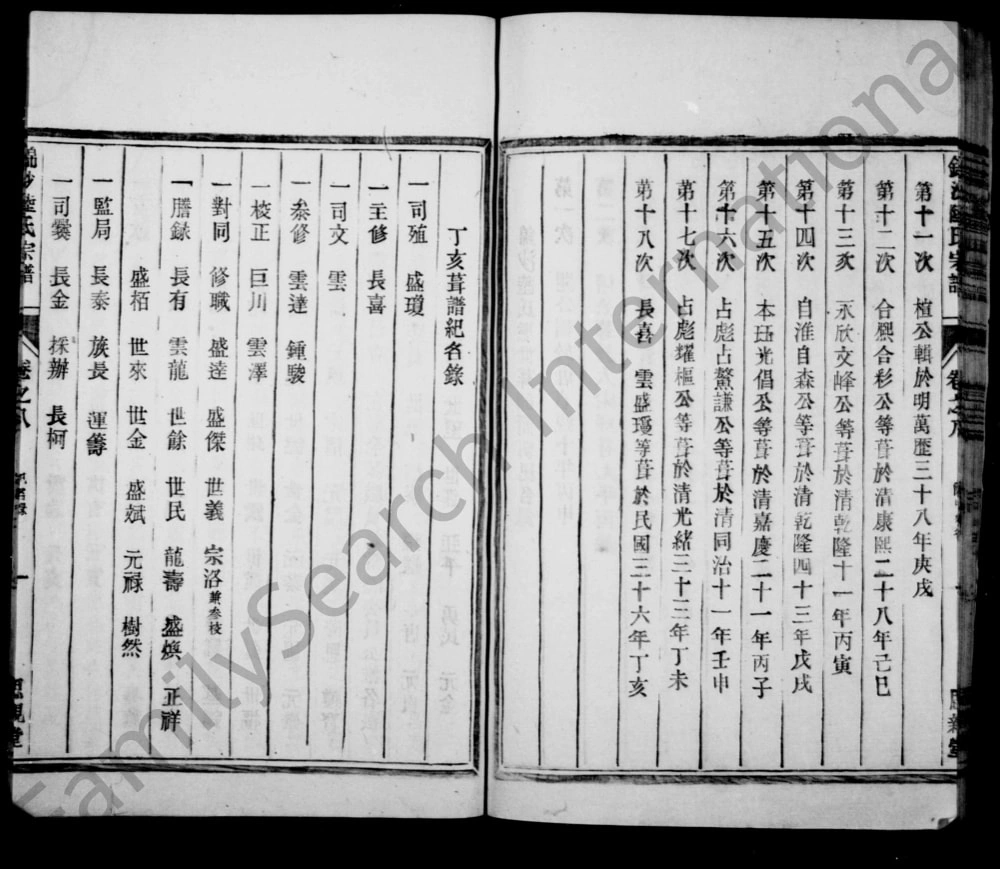 第十一次　楦公輯於明萬歷三十八年庚戌
第十二次　合熙合彩公等葺於清康熙二十八年己巳
第十三次　永欣文峰公等葺於清乾隆十一年丙寅
第十四次　自淮自森公等葺於清乾隆四十三年戊戌
第十五次　本珏光倡公等葺於清嘉慶二十一年丙子
第十六次　占彪占鰲謙公等葺於清同治十一年壬申
第十七次　占彪耀樞公等葺於清光緒三十三年丁未
第十八次　長喜　雲盛等葺於民國三十六年丁亥
丁亥葺譜紀名錄
一司殖　盛瓊
一主修　長喜
一司文　雲
一叅修　雲達　鍾駿
一校正　巨川　雲澤
一對同　修職　盛達　盛傑　世義　宗洛兼叅校
一謄錄　長有　雲龍　世餘　世民　龍壽　盛煥　正祥
盛栢　世來　世金　盛斌　元祿　樹然
一監局　長泰　族長　運籌
一司爨　長金　採辦　長柯
沙陸氏宗譜　卷之八　思親堂
FamilySearch International